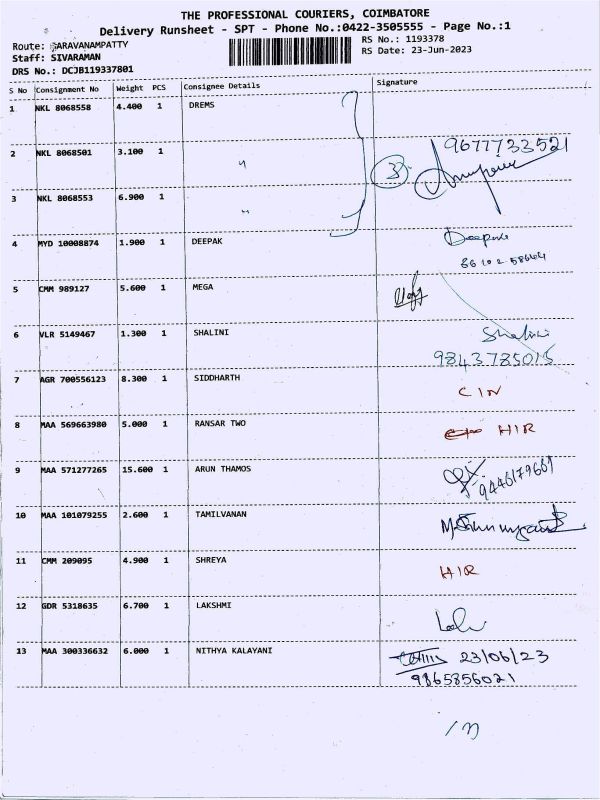 THE PROFESSIONAL COURIERS, COIMBATORE
Delivery Runsheet - SPT - Phone No.:0422-3505555 - Page No.:1
Route: SARAVANAMPATTY RS No.: 1193378
Staff: SIVARAMAN RS Date: 23-Jun-2023
DRS No.: DCJB119337801
S No Consignment No Weight PCS Consignee Details Signature
1 NKL 8068558 4.400 1 DREMS
9677733521
2 NKL 8068501 3.100 1 " 3
3 NKL 8068553 6.900 1 "
4 MYD 10008874 1.900 1 DEEPAK Deepak
5 CMM 989127 5.600 1 MEGA
6 VLR 5149467 1.300 1 SHALINI Shalini
9843785015
7 AGR 700556123 8.300 1 SIDDHARTH CIN
8 MAA 569663980 5.000 1 RANSAR TWO HIR
9 MAA 571277265 15.600 1 ARUN THAMOS
9446179669
10 MAA 101079255 2.600 1 TAMILVANAN
11 CMM 209095 4.900 1 SHREYA HIR
12 GDR 5318635 6.700 1 LAKSHMI
13 MAA 300336632 6.000 1 NITHYA KALAYANI 23/06/23
9865856021